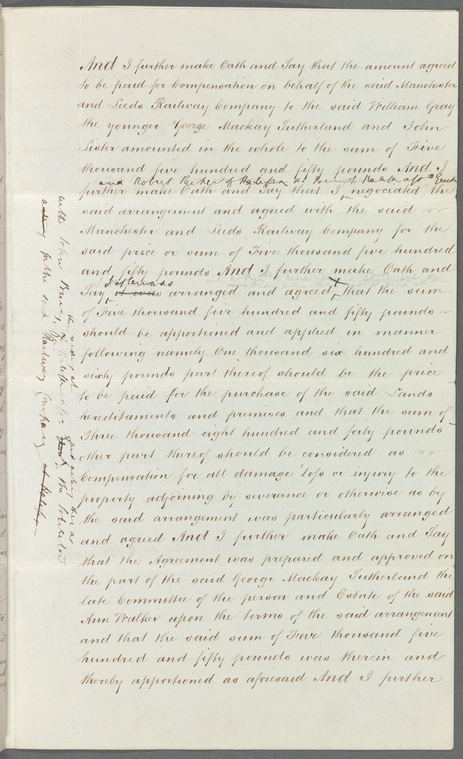 And I further make Oath and Say that the amount agreed
to be paid for Compensation on behalf of the said Manchester
and Leeds Railway Company to the said William Gray
the younger George Mackay Sutherland and John
Lister amounted in the whole to the sum of Five
thousand five hundred and fifty pounds And I
and Robert Parker of Halifax
further make Oath and Say that I negociated the
said arrangement and agreed with the said
Manchester and Leeds Railway Company for the
said price or sum of Five thousand five hundred
and fifty pounds And I further make Oath and
It was
Say it was arranged and agreed that the sum
of Five thousand five hundred and fifty pounds
should be apportioned and applied in manner
following namely One thousand six hundred and
sixty pounds part thereof should be the price
to be paid for the purchase of the said Lands
hereditaments and premises and that the sum of
Three thousand eight hundred and forty pounds
other part thereof should be considered as
Compensation for all damage loss or injury to the
property adjoining by severance or otherwise as by
the said arrangement was particularly arranged
and agreed And I further make Oath and Say
that the Agreement was prepared and approved on
the part of the said George Mackay Sutherland the
late Committee of the person and Estate of the said
Ann Walker upon the terms of the said arrangement
and that the said sum of Five thousand five
hundred and fifty pounds was therein and
thereby apportioned as aforesaid And I further
with John
for the said Railway Company
the Solicitor